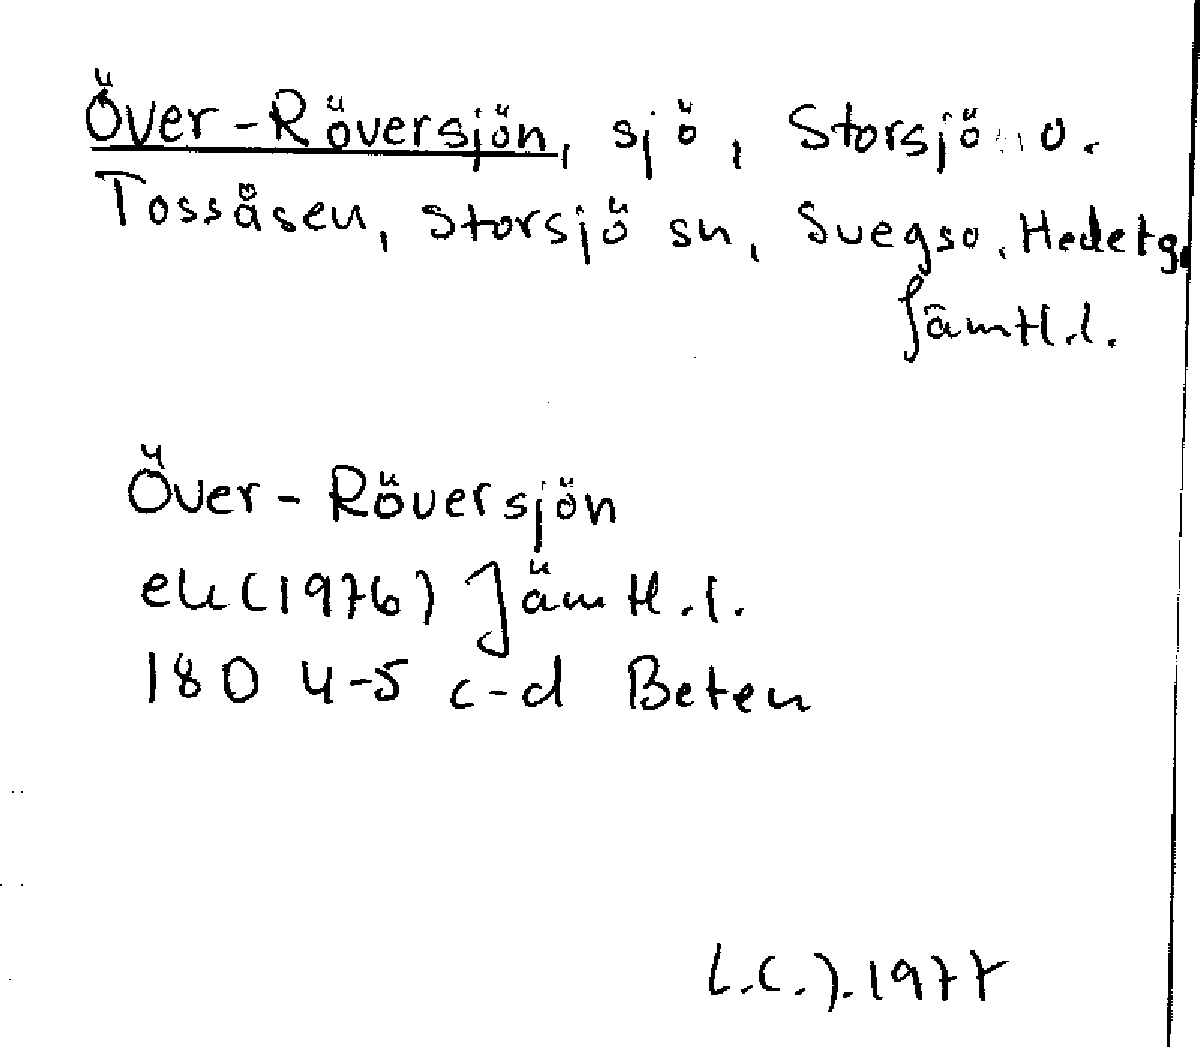 Över-Röversjön, sjö, Storsjö o.
Tossåsen, Storsjö sn, Svegs o. Hedetg.
Jämtl.l.
Över-Röversjön
ek(1976) Jämtl.l.
180 4-5 c-d Beten
L.C.J.1977